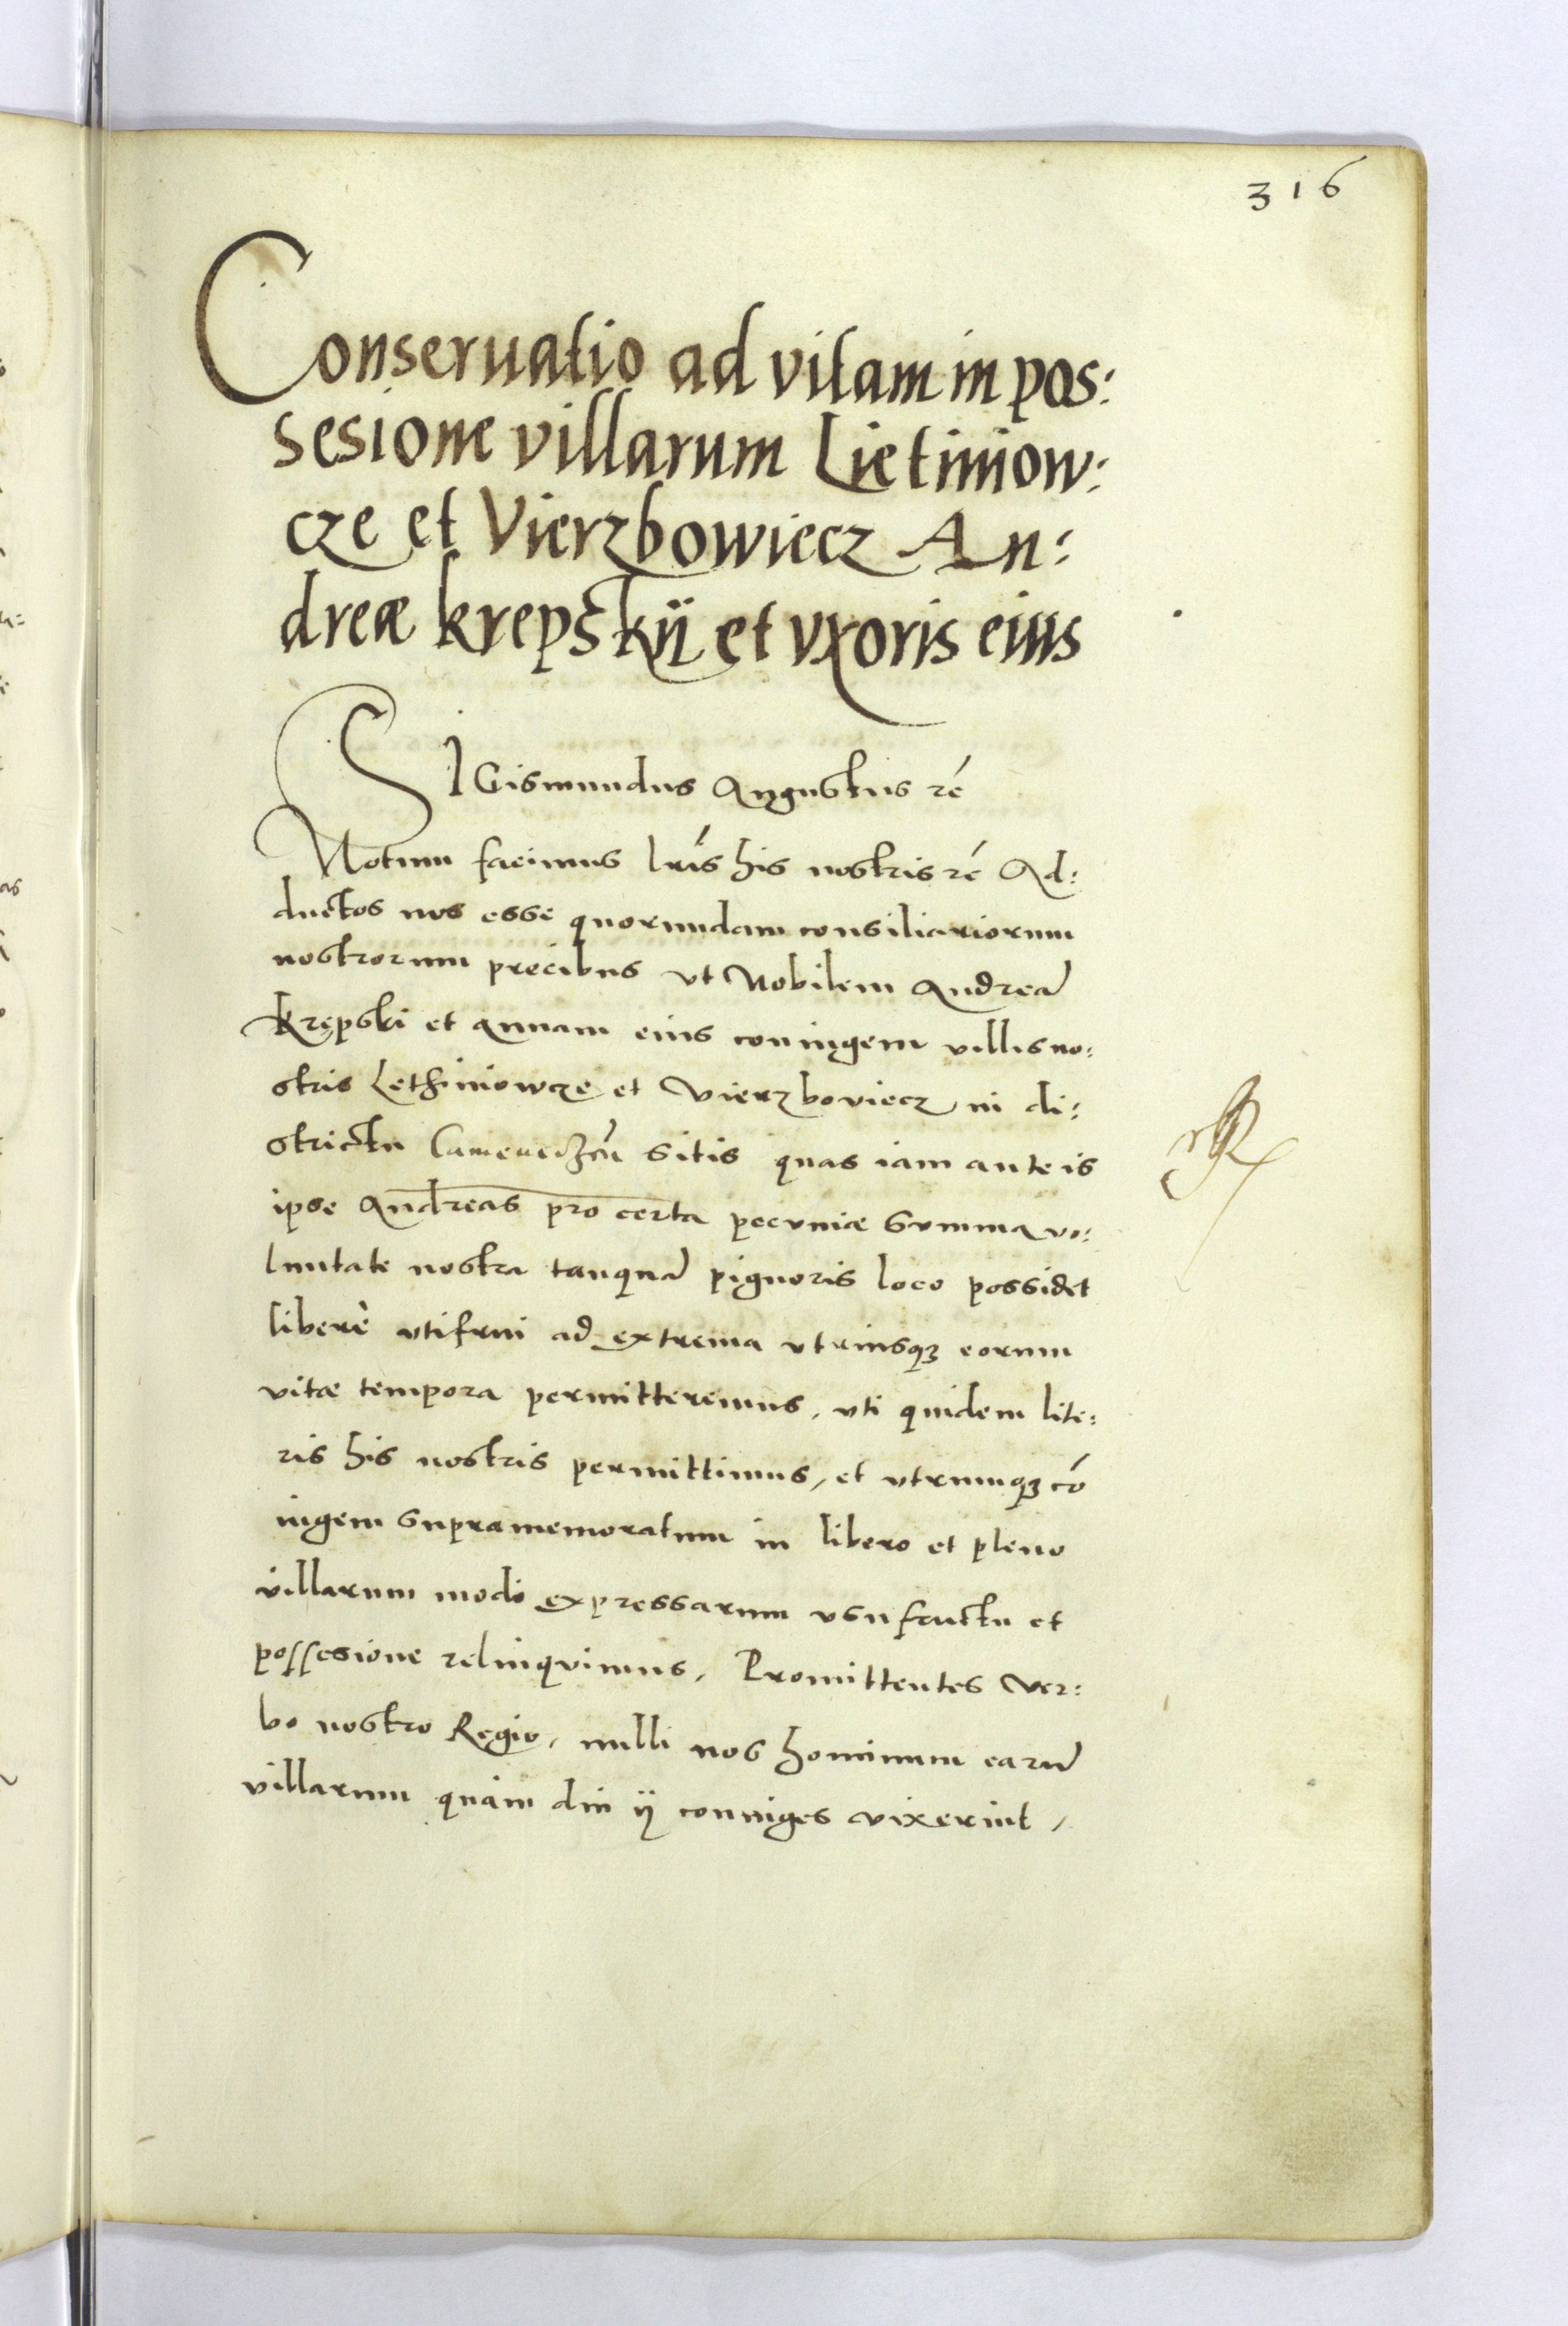 316
Conseruatio ad vitam in pos:
sesione villarum Lietiniow:
cze et Vierzbowiecz An:
dreæ krepskÿ et vxoris eius
SIGismundus Augustus rẽ
Notum facimus lr̃is his nostris rẽ Ad:
ductos nos esse quorundam consiliariorum
nostrorum precibus vt Nobilem Andreã
Krępski et annam eius coniugem villis no:
stris Lethiniowcze et Vierzboviecz in di:
strictu Camenecẽn sitis quas iam ante is
ipse Andreas pro certa pecuniæ summa vo:
luntate nostra tanquã pignoris loco possidet
liberè vtifrui ad extrema vtriusqꝫ eorum
vitæ tempora permitteremus, vti quidem lite:
ris his nostris permittimus, et vtrumqꝫ cõ
iugem supramemoratum in libero et pleno
villarum modo expressarum vsufructu et
possesione relinquimus, Promittentes ver:
bo nostro Regio, nulli nos hominum earũ
villarum quàm diu ij coniuges vixerint,